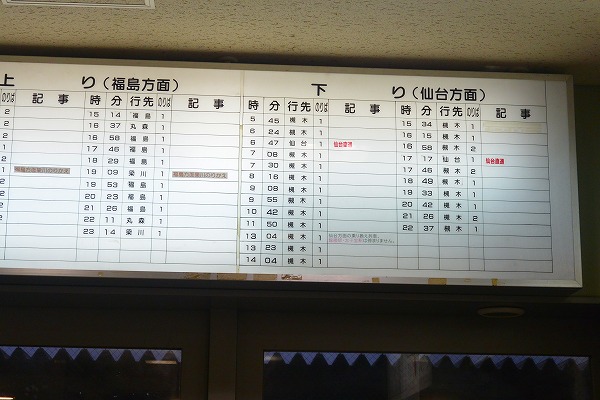 上 り(福島方面) 下 り(仙台方面)
のりば 記事 時 分 行先 のりば 記事 時 分 行先 のりば 記事 時 分 行先 のりば 記事
2 15 14 福島 1 5 45 槻木 1 15 34 槻木 1
2 16 37 丸森 1 6 24 槻木 1 16 15 槻木 1
2 16 58 福島 1 6 47 仙台 1 仙台直通 16 58 槻木 2
1 17 46 福島 1 7 08 槻木 1 17 17 仙台 1 仙台直通
1 18 29 福島 1 7 30 槻木 1 17 46 槻木 2
1 福島方面梁川のりかえ 19 09 梁川 1 福島方面梁川のりかえ 8 16 槻木 1 18 29 槻木 2
1 19 53 福島 1 9 08 槻木 1 18 49 槻木 1
2 20 23 福島 1 9 55 槻木 1 19 33 槻木 1
2 21 26 福島 1 10 42 槻木 1 20 42 槻木 1
2 22 11 丸森 1 11 50 槻木 1 21 26 槻木 2
23 14 梁川 1 13 04 槻木 1 22 37 槻木 1
13 23 槻木 1
14 04 槻木 1